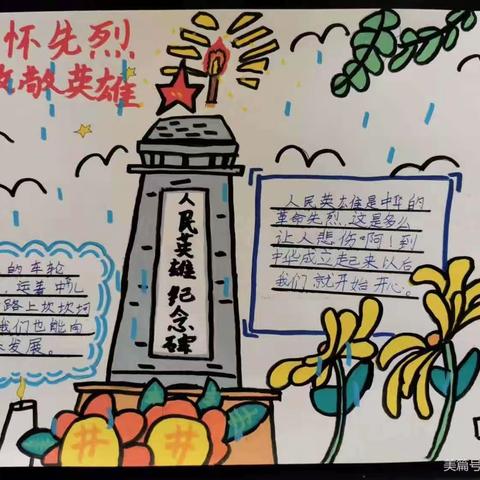 怀先烈
致敬英雄
人民英雄纪念碑
人民英雄是中华的
革命先烈,这是多么
让人悲伤啊!到
中华成立起来以后
我们就开始开心。
的车轮
路上坎坎坷
我们也能向
发展。
美篇号